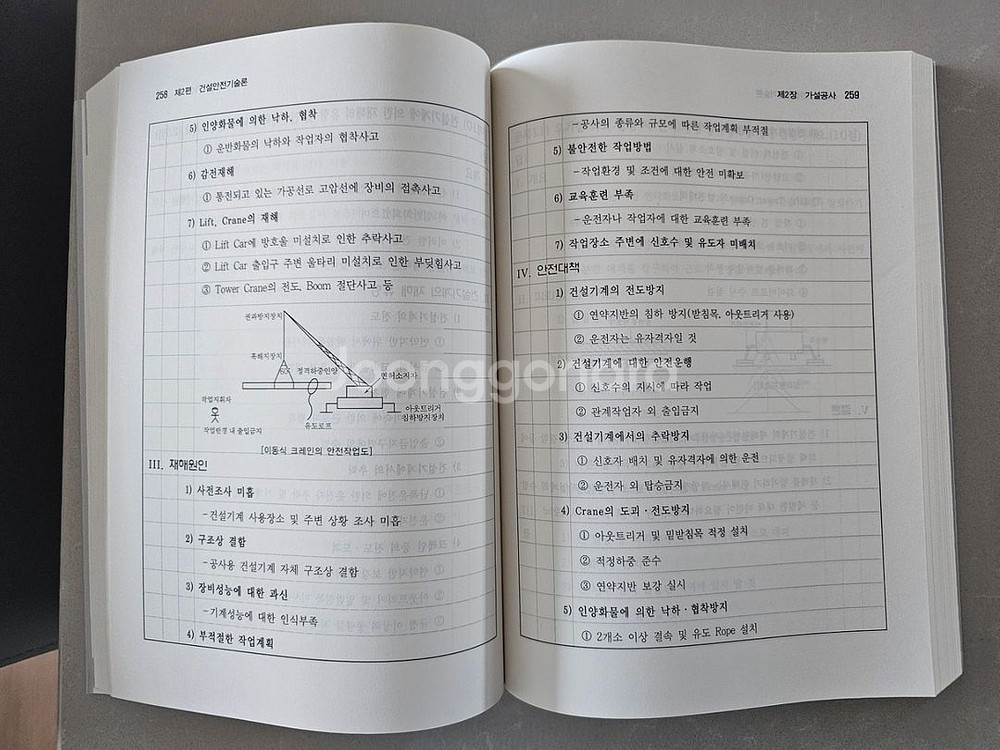 258 제2편 건설안전기술론
5) 인양화물에 의한 낙하, 협착
① 운반화물의 낙하와 작업자의 협착사고
6) 감전재해
① 통전되고 있는 가공선로 고압선에 장비의 접촉사고
7) Lift, Crane의 재해
① Lift Car에 방호울 미설치로 인한 추락사고
② Lift Car 출입구 주변 울타리 미설치로 인한 부딪힘사고
③ Tower Crane의 전도, Boom 절단사고 등
권과방지장치
훅해지장치
60°
정격하중인양
면허소지자
작업지휘자
작업반경 내 출입금지
유도로프
아웃트리거
침하방지장치
[이동식 크레인의 안전작업도]
III. 재해원인
1) 사전조사 미흡
-건설기계 사용장소 및 주변 상황 조사 미흡
2) 구조상 결함
-공사용 건설기계 자체 구조상 결함
3) 장비성능에 대한 과신
-기계성능에 대한 인식부족
4) 부적절한 작업계획
제2장 가설공사 259
-공사의 종류와 규모에 따른 작업계획 부적절
5) 불안전한 작업방법
-작업환경 및 조건에 대한 안전 미확보
6) 교육훈련 부족
-운전자나 작업자에 대한 교육훈련 부족
7) 작업장소 주변에 신호수 및 유도자 미배치
IV. 안전대책
1) 건설기계의 전도방지
① 연약지반의 침하 방지(받침목, 아웃트리거 사용)
② 운전자는 유자격자일 것
2) 건설기계에 대한 안전운행
① 신호수의 지시에 따라 작업
② 관계작업자 외 출입금지
3) 건설기계에서의 추락방지
① 신호자 배치 및 유자격자에 의한 운전
② 운전자 외 탑승금지
4) Crane의 도괴·전도방지
① 아웃트리거 및 밑받침목 적정 설치
② 적정하중 준수
③ 연약지반 보강 실시
5) 인양화물에 의한 낙하·협착방지
① 2개소 이상 결속 및 유도 Rope 설치